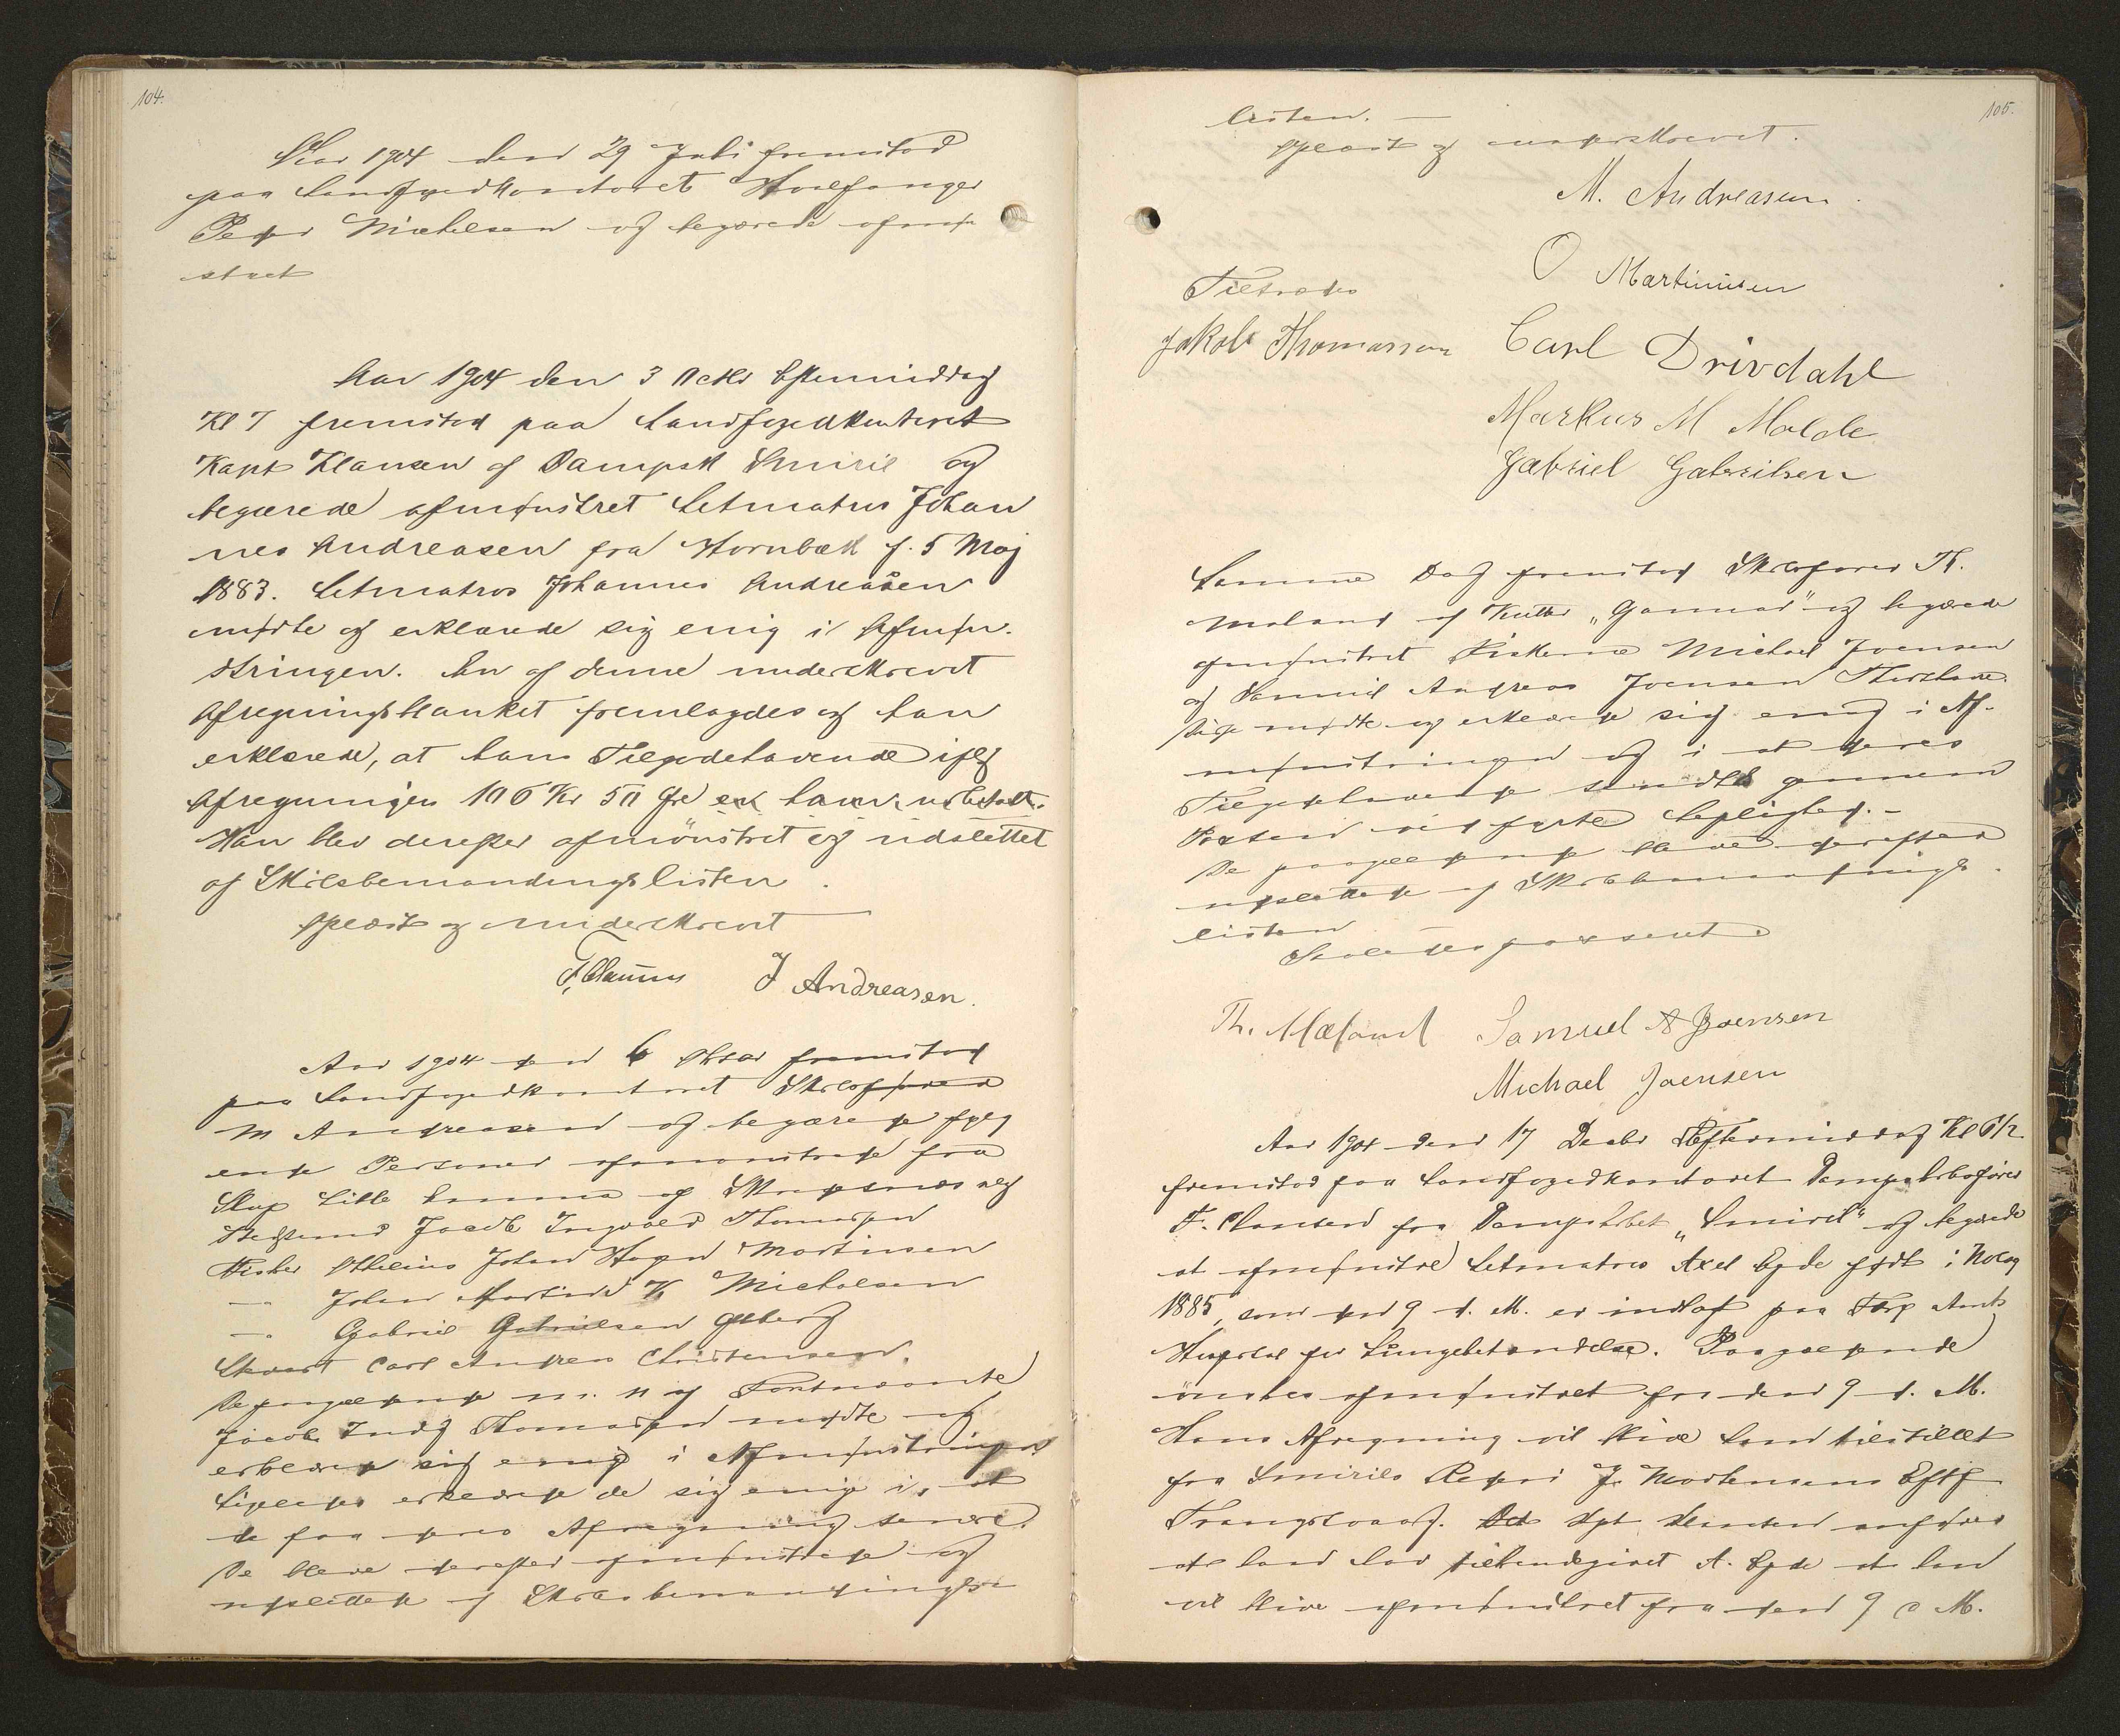 104.
Aar 1904 den 29 Juli fremstod
paa Landfogedkontoret Hvalfanger
Peder Michelsen og begærede afmøn
stret
Aar 1904 den 3 Octbr Eftermiddag
Kl 7 fremstod paa Landfogedkontoret
Kapt Klausen af Dampsk Smiril og
begærede afmønstret Letmatros Johan
nes Andreasen fra Hornbæk f. 5 Maj
1883. Letmatros Johannes Andreasen
mødte og erklærede sig enig i Afmøn.
stringen. En af denne underskrevet
Afregningsblanket fremlagdes og han
erklærede, at hans Tilgodehavende iflg
Afregningen 106 Kr 50 Øre er ham udbetalt.
Han blev derefter afmönstret og udslettet
af Skibsbemandingslisten.
Oplæst og underskrevet
F. Clausen J Andreasen.
Aar 1904 den 6 Oktbr fremstod
paa Landfogedkontoret Skibsfører
M Andreasen og begærede følg
ende Personer afmønstrede fra
Slup Lille
Bedstemd Jacob Ingvald Thomassen
Fisker Johan Martinsen
— Johan K Michelsen
— Gabriel Gabrielsen
Carl Andreas Christensen.
De paagældende m. U. af
Jacob Thomassen mødte og
erklærede sig enig i Afmønstringen
Ligeledes erklærede de sig enige i, at
de faa deres Afregning senere.
De bleve derefter afmønstrede og
udslettede af Skibsbemandings
105.
listen. —
Oplæst og underskrevet.
M. Andreasen.
O Martinisen
Tiltrædes
Jakob Thomassen Carl Drivdahl
Markus M Molde
Gabriel Gabrielsen
Samme Dag fremstod Skibsfører Th.
Møland af Kutter „Gunnar" og begærede
afmønstret Fiskerne Michael Joensen
og Samuel Andreas Joensen Thorshavn.
Begge mødte og erklærede sig enig i Af-
mønstringen og i at deres
Tilgodehavende sendtes gennem
Posten ved første Leilighed. -
De paagældende bleve derefter
udslettede af Skibsbemandings
listen
Th. Møland Samuel A Joensen
Michael Joensen
Aar 1904 den 17 Decbr Eftermiddag Kl 6½
fremstod paa Landfogedkontoret Dampskibsfører
F. Clausen fra Dampskibet „Smiril" og begærede
at afmønstre Letmatros Axel Egde født i
1885, som den 9 d. M. er indlagt paa Amts
Hospital for Lungebetændelse. Paagældende
ønskes afmønstret fra den 9 d. M.
Hans Afregning vil blive ham tilstillet
fra Smirils Rederi J. Mortensens Eftf
Trangisvaag. Kpt Clausen anfører
at han har tilkendegivet A. Egde at han
vil blive afmønstret fra den 9 d M.